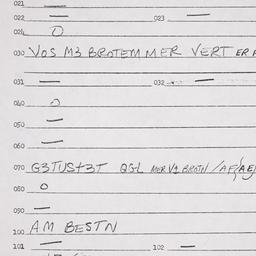 021
022 — 023 —
024 O
030 VOS M3 BROTEM MER VERT ER
031 — 032 —
040 O
050 —
060 —
070 G3TUS+3T QGL MER V1 BROTN /AF
080 O
090 —
100 AM BESTN
101 — 102 —